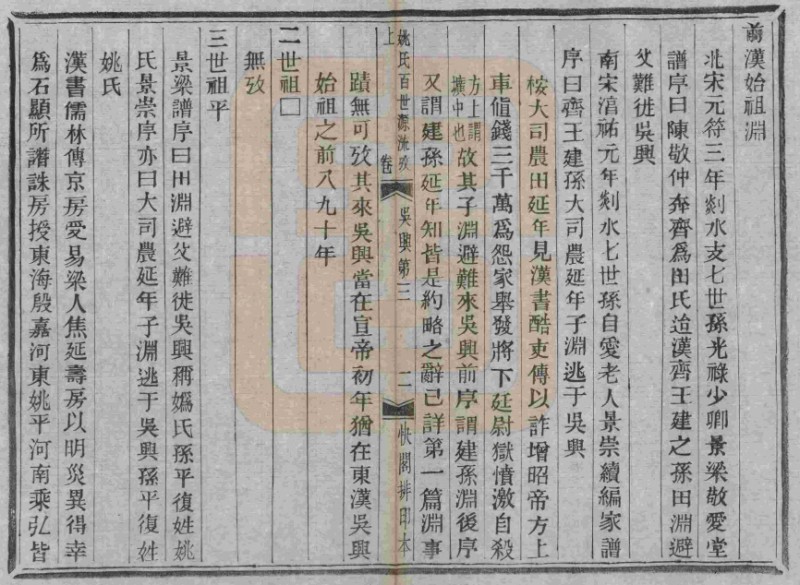 前漢始祖淵
北宋元符三年剡水支七世孫光祿少卿景梁敬愛堂
譜序曰陳敬仲奔齊爲田氏迨漢齊王建之孫田淵避
父難徙吳興
南宋淳祐元年剡水七世孫自愛老人景崇續編家譜
序曰齊王建孫大司農延年子淵逃于吳興
桉大司農田延年見漢書酷吏傳以詐增昭帝方上
車値錢三千萬爲怨家舉發將下廷尉獄憤激自殺
方上謂
壙中也
故其子淵避難來吳興前序謂建孫淵後序
又謂建孫延年知皆是約略之辭已詳第一篇淵事
蹟無可攷其來吳興當在宣帝初年猶在東漢吳興
始祖之前八九十年
姚氏百世源流攷 卷上 吳興第三 二 快閣排印本
二世祖□
無攷
三世祖平
景梁譜序曰田淵避父難徙吳興稱嬀氏孫平復姓姚
氏景崇序亦曰大司農延年子淵逃于吳興孫平復姓
姚氏
漢書儒林傳京房受易梁人焦延壽房以明災異得幸
爲石顯所譖誅房授東海殷嘉河東姚平河南乘弘皆